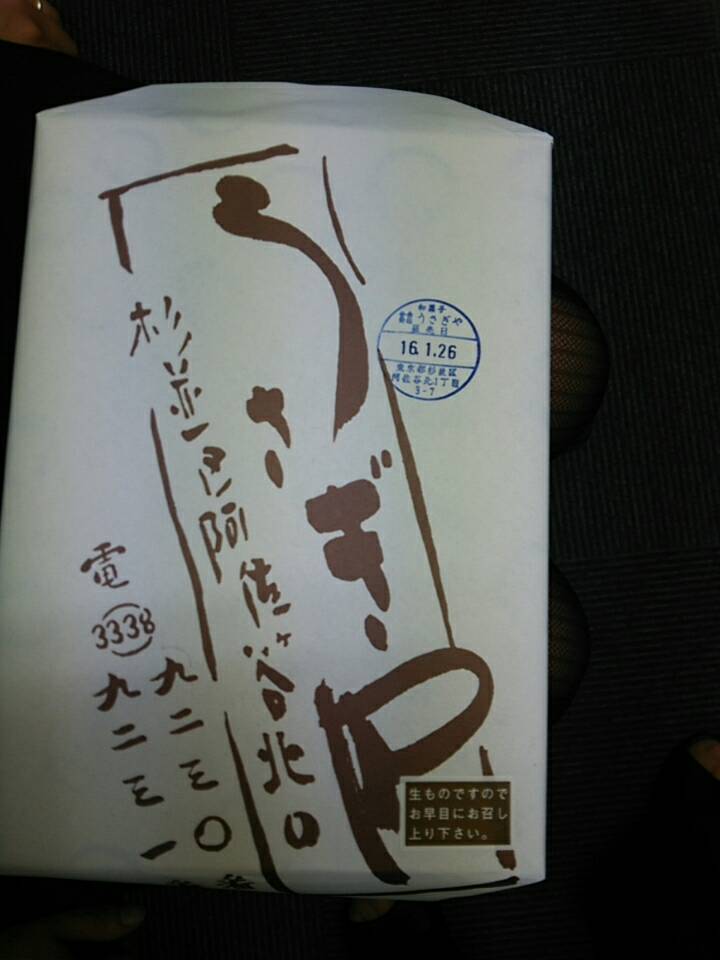 うさぎや
杉並区阿佐ヶ谷北口
電
3338
九二三〇
九二三一
和菓子
うさぎや
販売日
16.1.26
東京都杉並区
阿佐谷北1丁目
3-7
生ものですので
お早目にお召し
上り下さい。